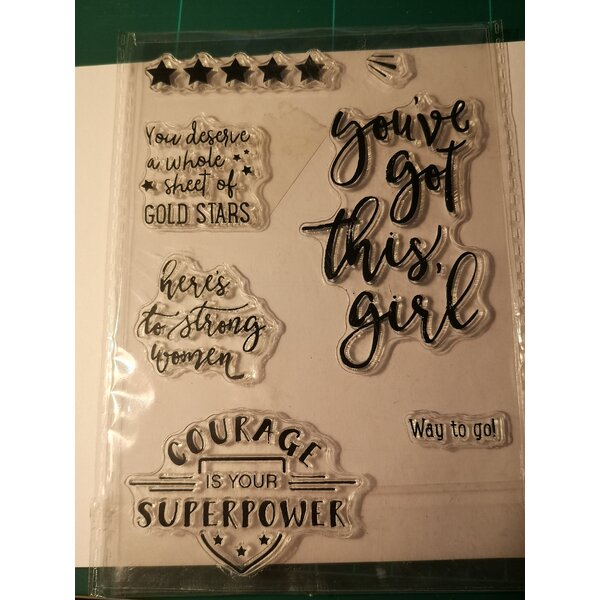 You deserve
a whole
sheet of
GOLD STARS
you've
got
this,
girl
here's
to strong
women
Way to go!
COURAGE
IS YOUR
SUPERPOWER